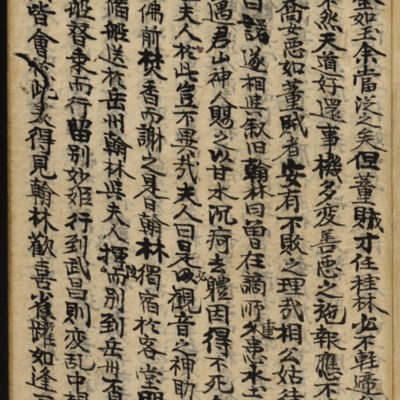 如玉余當泛之矣但董賊才任桂林必不輕
不然天道好還事機多变善悪之施報應不
喬女悪如董賊者安有不敗之理哉相公姑待
曰諾遂相與叙旧翰林曰昔日在謫所久患水土
遇君山神人賜之以甘水沉疴去體因得不死
夫人於此豈不畏哉夫人曰是必観音之神助
佛前焚香而謝之是日翰林獨宿於客堂明
姬送於岳州翰林與夫人揮而別到岳州不
姬發乘而行留別妙姬行到武昌則変乱中
皆會於此矣得見翰林歡喜雀躍如逢